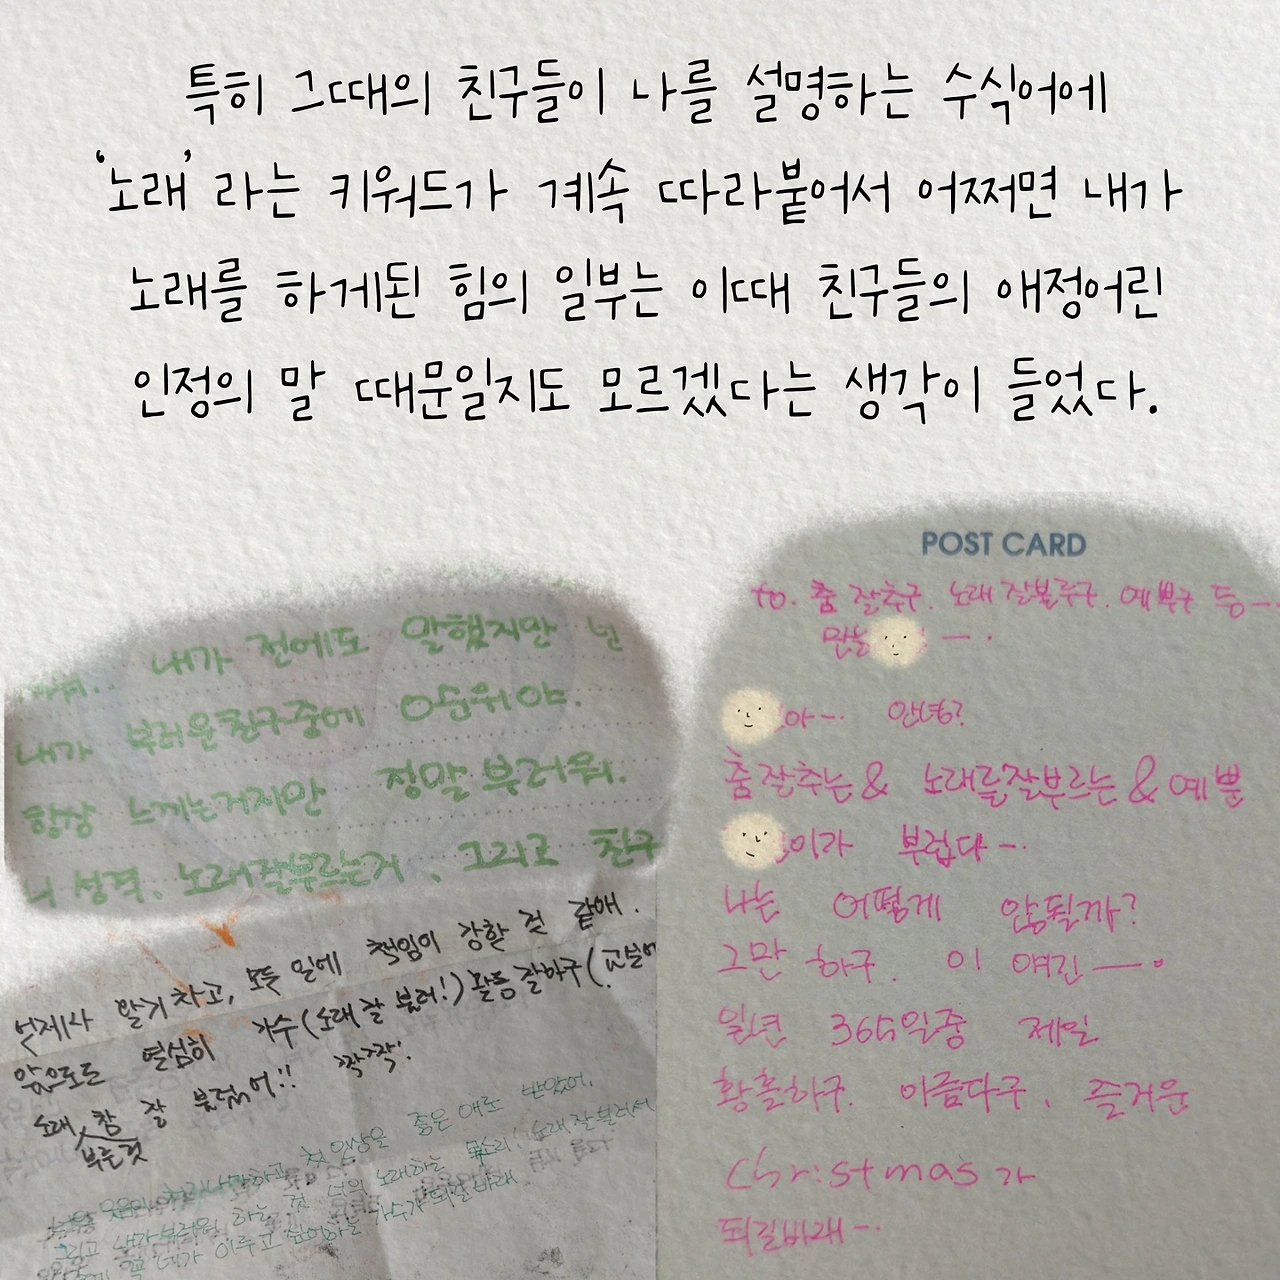 특히 그때의 친구들이 나를 설명하는 수식어에
'노래' 라는 키워드가 계속 따라붙어서 어쩌면 내가
노래를 하게된 힘의 일부는 이때 친구들의 애정어린
인정의 말 때문일지도 모르겠다는 생각이 들었다.
내가 전에도 말했지만 넌
내가 부러운친구중에 0순위야.
항상 느끼는거지만 정말 부러워.
니 성격, 노래잘부르는거, 그리고 친구
언제나 활기차고, 모든 일에 책임이 강한 것 같애.
앞으로도 열심히 가수(노래 잘 불러!)활동 잘하구(교실에
노래 참 잘 불렀어!! 짝짝!
부른것
첫인상은 좋은 애로 반았어.
그리고 내가부러워 하는 것 너의 노래하는 목소리! 노래잘불러서
네가 이루고 가수가 되길바래
POST CARD
to. 춤 잘추구. 노래 잘불루구. 예쁘구 등--
만능 --.
아--. 안녕?
춤잘추는& 노래를잘부르는&예쁜
이가 부럽다--.
나는 어떻게 안될까?
그만 하구. 이 얘긴--.
일년 365일중 제일
황홀하구. 아름다구. 즐거운
Christmas가
되길바래--.